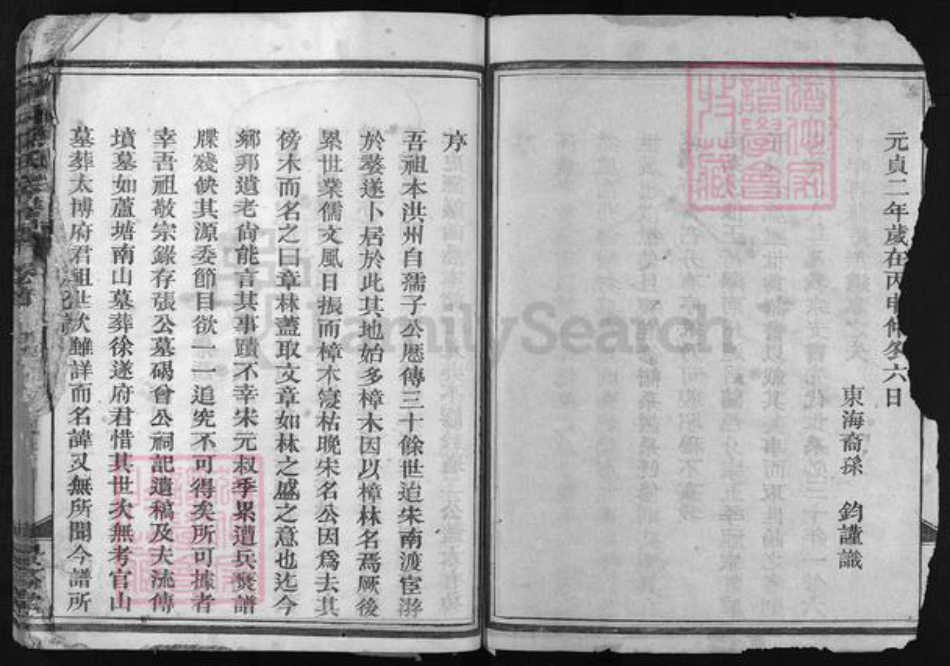 元貞二年歲在丙申脩冬六日
東海裔孫　鈞謹識
序
吾祖本洪州自孺子公歷傳三十餘世迨宋南渡宦游
於婺遂卜居於此其地始多樟木因以樟林名焉厥後
累世業儒文風日振而樟木寖枯晚宋名公因爲去其
傍木而名之曰章林蓋取文章如林之盛之意也迄今
鄉邦遺老尙能言其事蹟不幸宋元叔季累遭兵燹譜
牒殘缺其源委節目欲一一追究不可得矣所可據者
幸吾祖敬宗錄存張公墓碣曾公祠記遺稿及夫流傳
墳墓如蘆塘南山墓葬徐遂府君惜其世次無考官山
墓葬太博府君祖世次雖詳而名諱又無所聞今譜所
FamilySearch